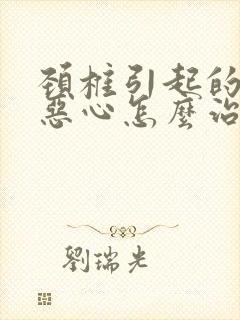 頚椎引起的
惡心怎麼治
劉瑞光